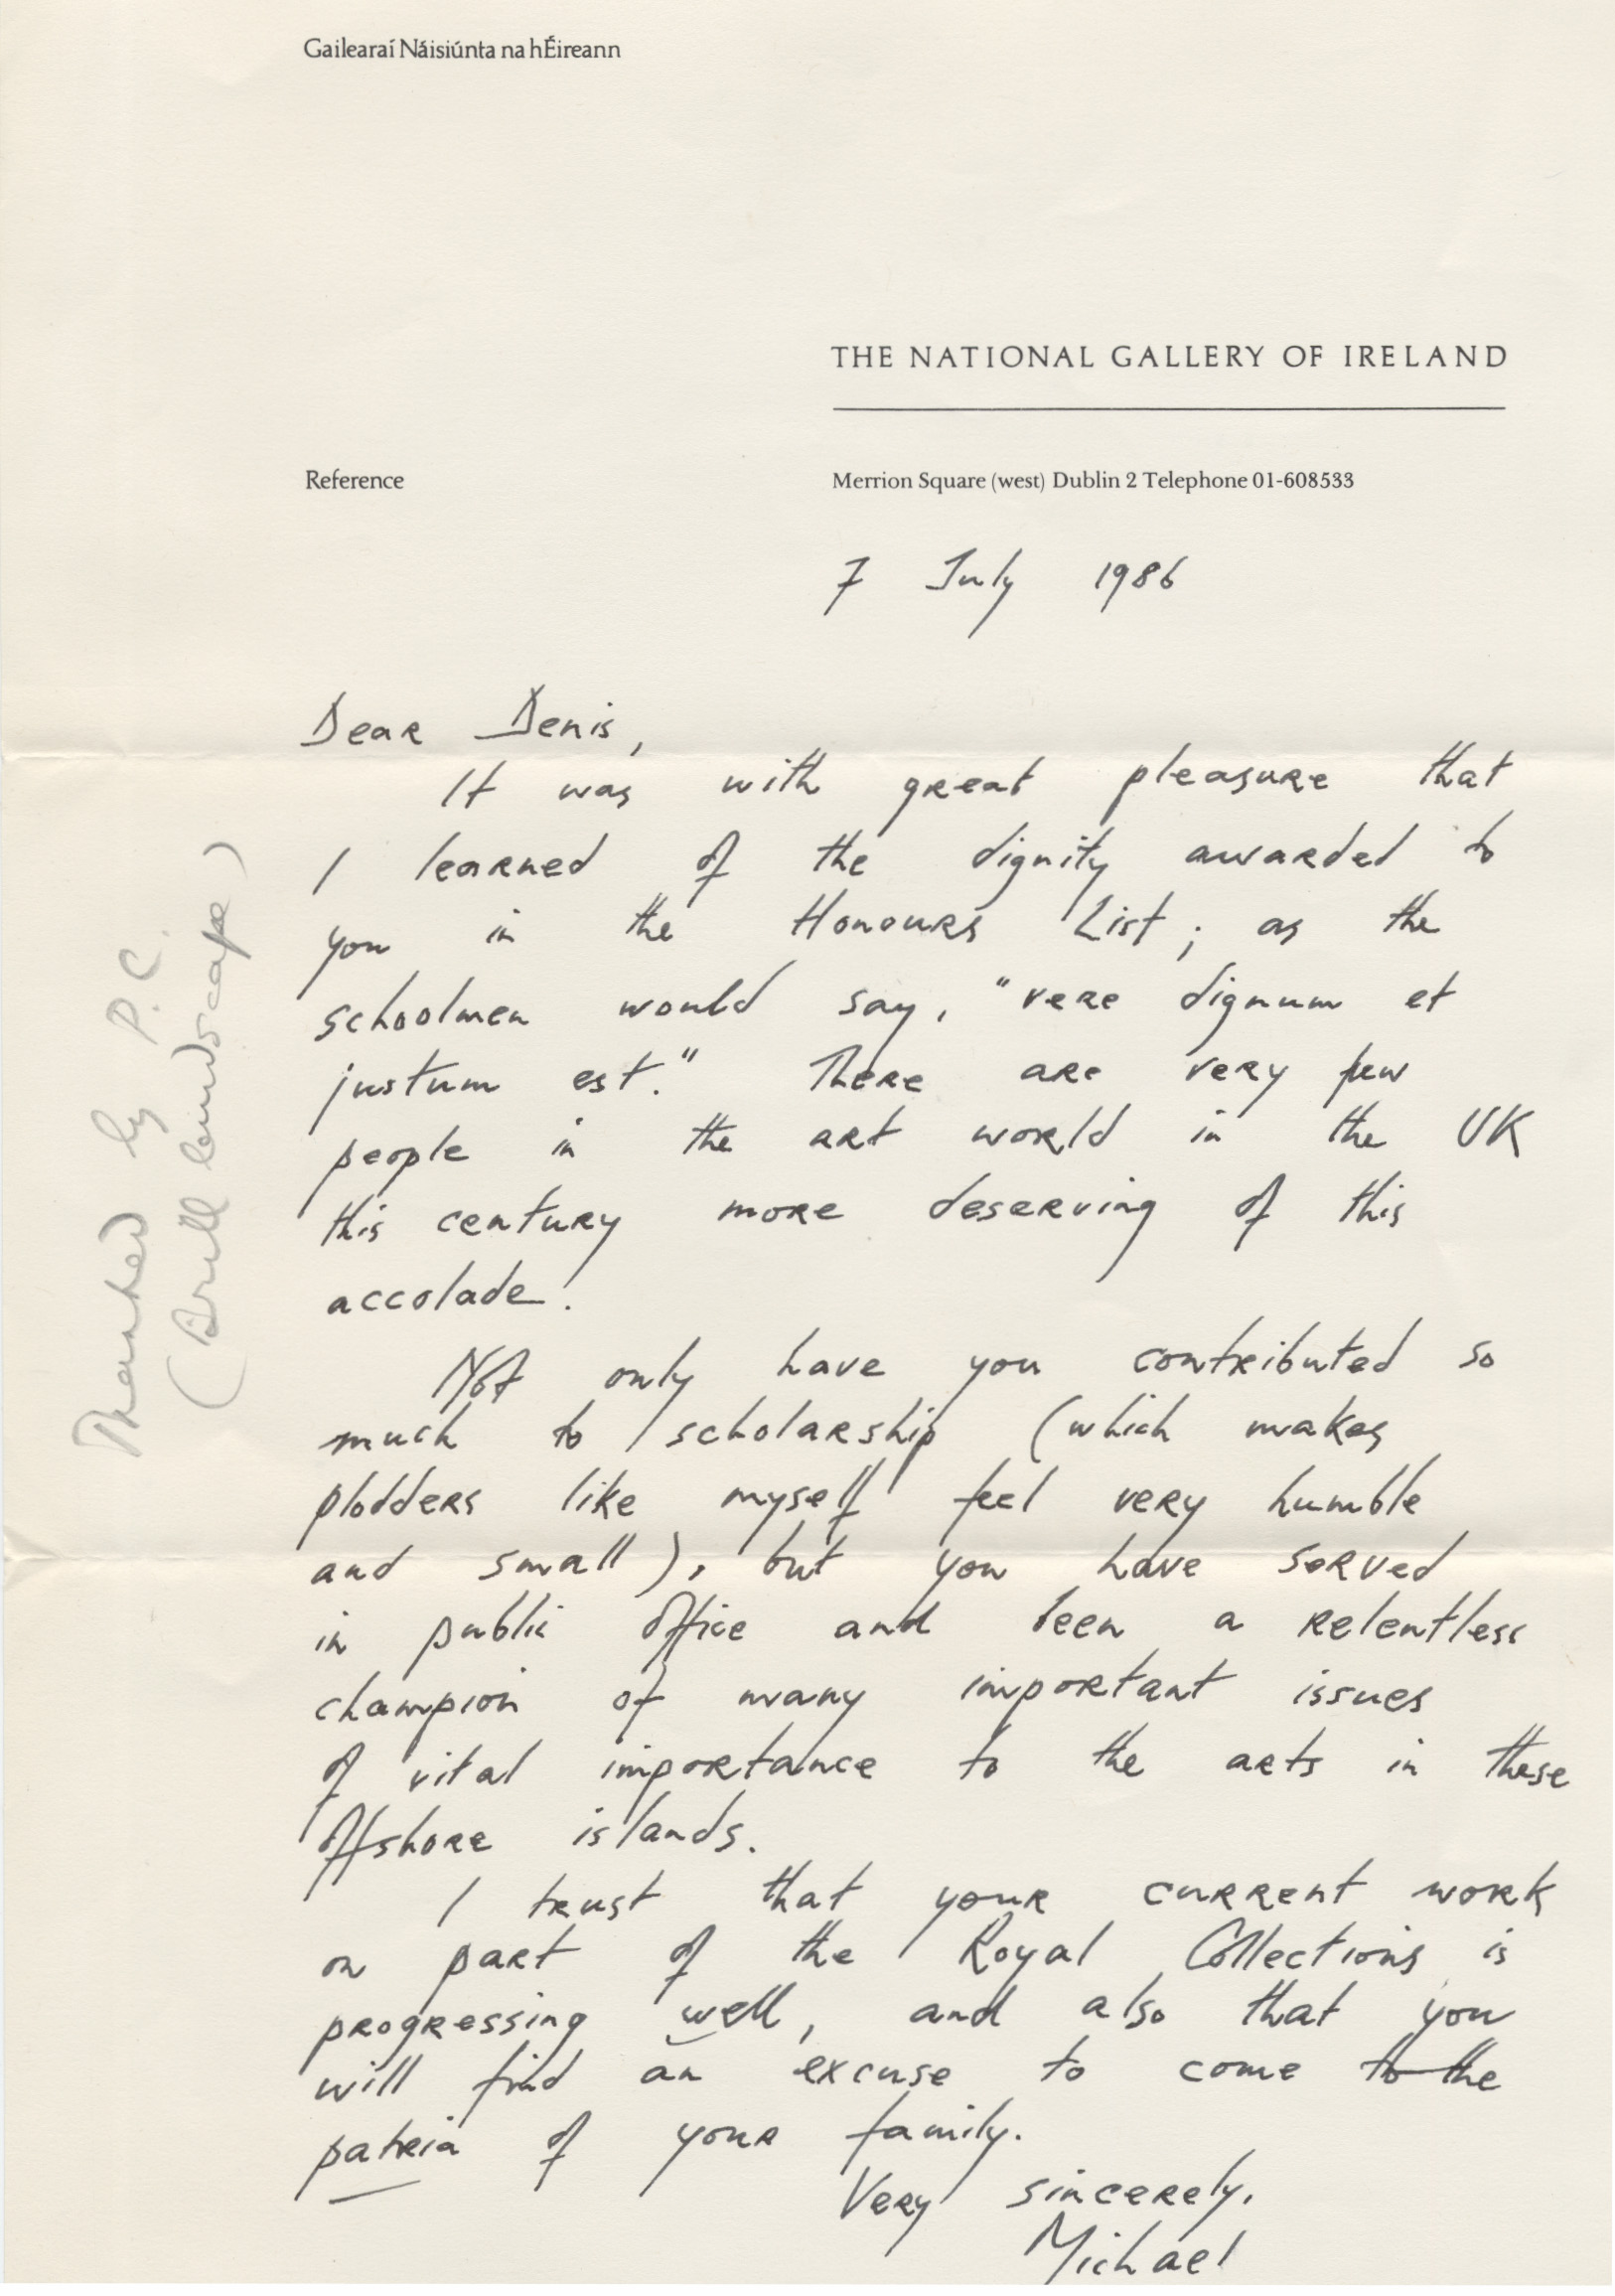 Gailearaí Náisiúnta na hÉireann
THE NATIONAL GALLERY OF IRELAND
Reference
Merrion Square (west) Dublin 2 Telephone 01-608533
7 July 1986
Dear Denis,
It was with great pleasure that
I learned of the dignity awarded to
you in the Honours List; as the
schoolmen would say, "vere dignum et
justum est." There are very few
people in the art world in the UK
this century more deserving of this
accolade!
Not only have you contributed so
much to scholarship (which makes
plodders like myself feel very humble
and small), but you have served
in public office and been a relentless
champion of many important issues
of vital importance to the arts in these
offshore islands.
I trust that your current work
on part of the Royal Collections is
progressing well, and also that you
will find an excuse to come to the
patria of your family.
Very sincerely,
Michael
Thanked by P.C.
(Brill landscape)